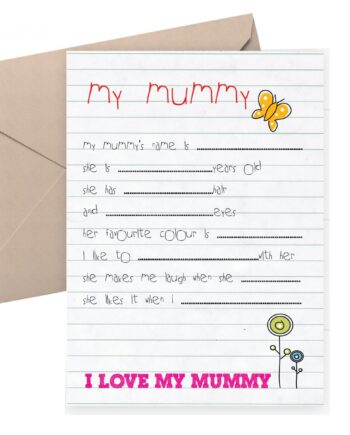 my mummy
my mummy's name is ............................
she is ............................years old
she has ............................hair
and ............................eyes
her favourite colour is ............................
I like to ............................with her
she makes me laugh when she ............................
she likes it when I ............................
I LOVE MY MUMMY